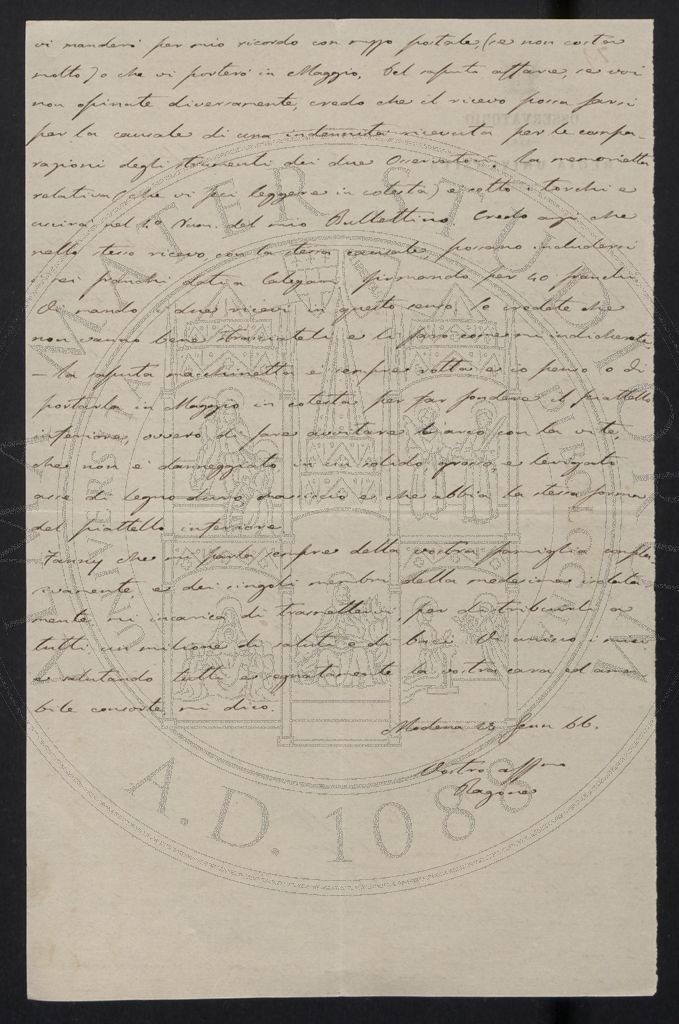 vi manderò per mio ricordo con mezzo postale, (se non costa
molto) o che vi porterò in Maggio. Del saputo affare, se voi
non opinate diversamente, credo che il ricevo possa farsi
per la causale di una indennità ricevuta per le compa-
razioni degli strumenti dei due Osservatori. La memorietta
relativa (che vi feci leggere in costà) è sotto i torchi e
uscirà nel 1º Num. del mio Bullettino. Credo anzi che
nello stesso ricevo con la stessa causale, possano includersi
i sei franchi dati a Calegari firmando per 40 franchi.
Vi mando i due ricevi in questo senso. Se credete che
non vanno bene stracciateli e li farò come mi indicherete.
— La saputa macchinetta è sempre rotta e io penso o di
portarla in Maggio in costà per far fondere il piattello
inferiore, ovvero di fare avvitare l'arco con la vite,
che non è danneggiato in un solido, grosso, e levigato
asse di legno duro massiccio e che abbia la stessa forma
del piattello inferiore.
Fanny che mi parla sempre della vostra famiglia comples-
sivamente, e dei singoli membri della medesima isolata-
mente mi incarica di trasmettervi, per distribuirli a
tutti un milione di saluti e di baci. Vi unisco i miei
e salutando tutti e segnatamente la vostra cara ed ama-
bile consorte mi dico.
Modena 23 Genn 66.
Vostro affmo
Ragona
ALMA MATER STUDIORUM
A.D. 1088